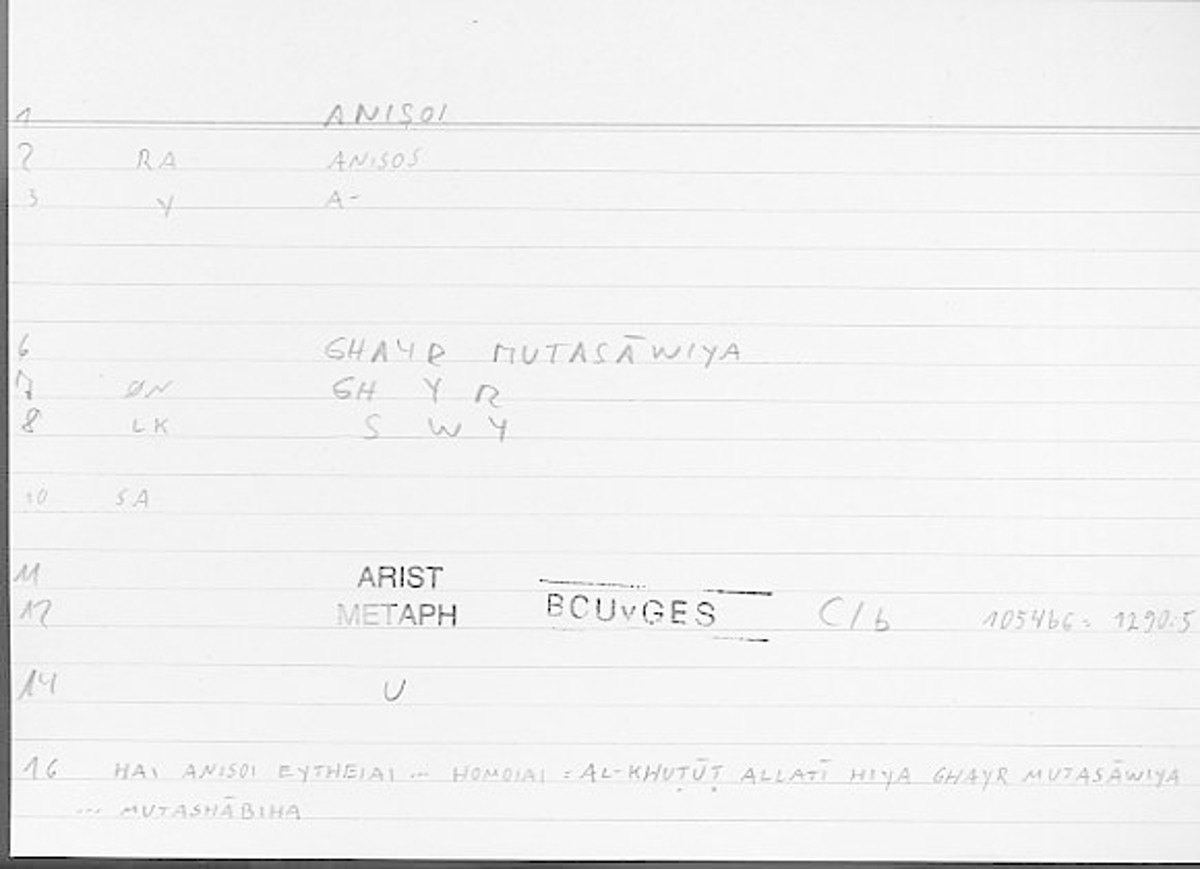 1 ANISOI
2 RA ANISOS
3 Y A-
6 GHAYR MUTASĀWIYA
7 ØN GH Y R
8 LK S W Y
10 SA
11 ARIST
12 METAPH BOUYGES C/b 1054b6 : 1290.5
14 U
16 HAI ANISOI EYTHEIAI ... HOMOIAI = AL-KHUṬŪṬ ALLATĪ HIYA GHAYR MUTASĀWIYA
... MUTASHĀBIHA